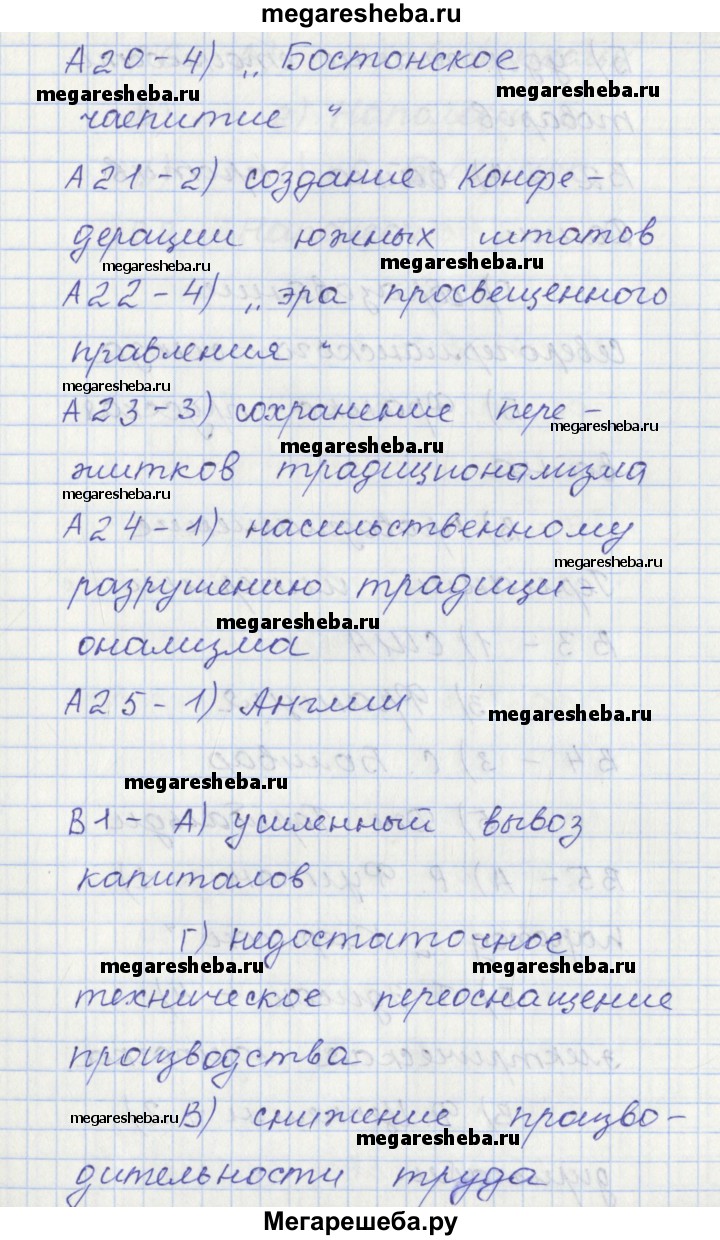 megaresheba.ru
А20-4) „Бостонское
megaresheba.ru megaresheba.ru
чаепитие“
А21-2) создание Конфе-
дерации южных штатов
megaresheba.ru megaresheba.ru
А22-4) „эра просвещенного
правления“
megaresheba.ru
А23-3) сохранение пере-
megaresheba.ru
житков традиционализма
megaresheba.ru
А24-1) насильственному
megaresheba.ru
разрушению традици-
megaresheba.ru
онализма
А25-1) Англии
megaresheba.ru
megaresheba.ru
В1- А) усиленный вывоз
капиталов
Г) недостаточное
megaresheba.ru megaresheba.ru
техническое переоснащение
производства
megaresheba.ru В) снижение произво-
megaresheba.ru
дительности труда
Мегарешеба.ру